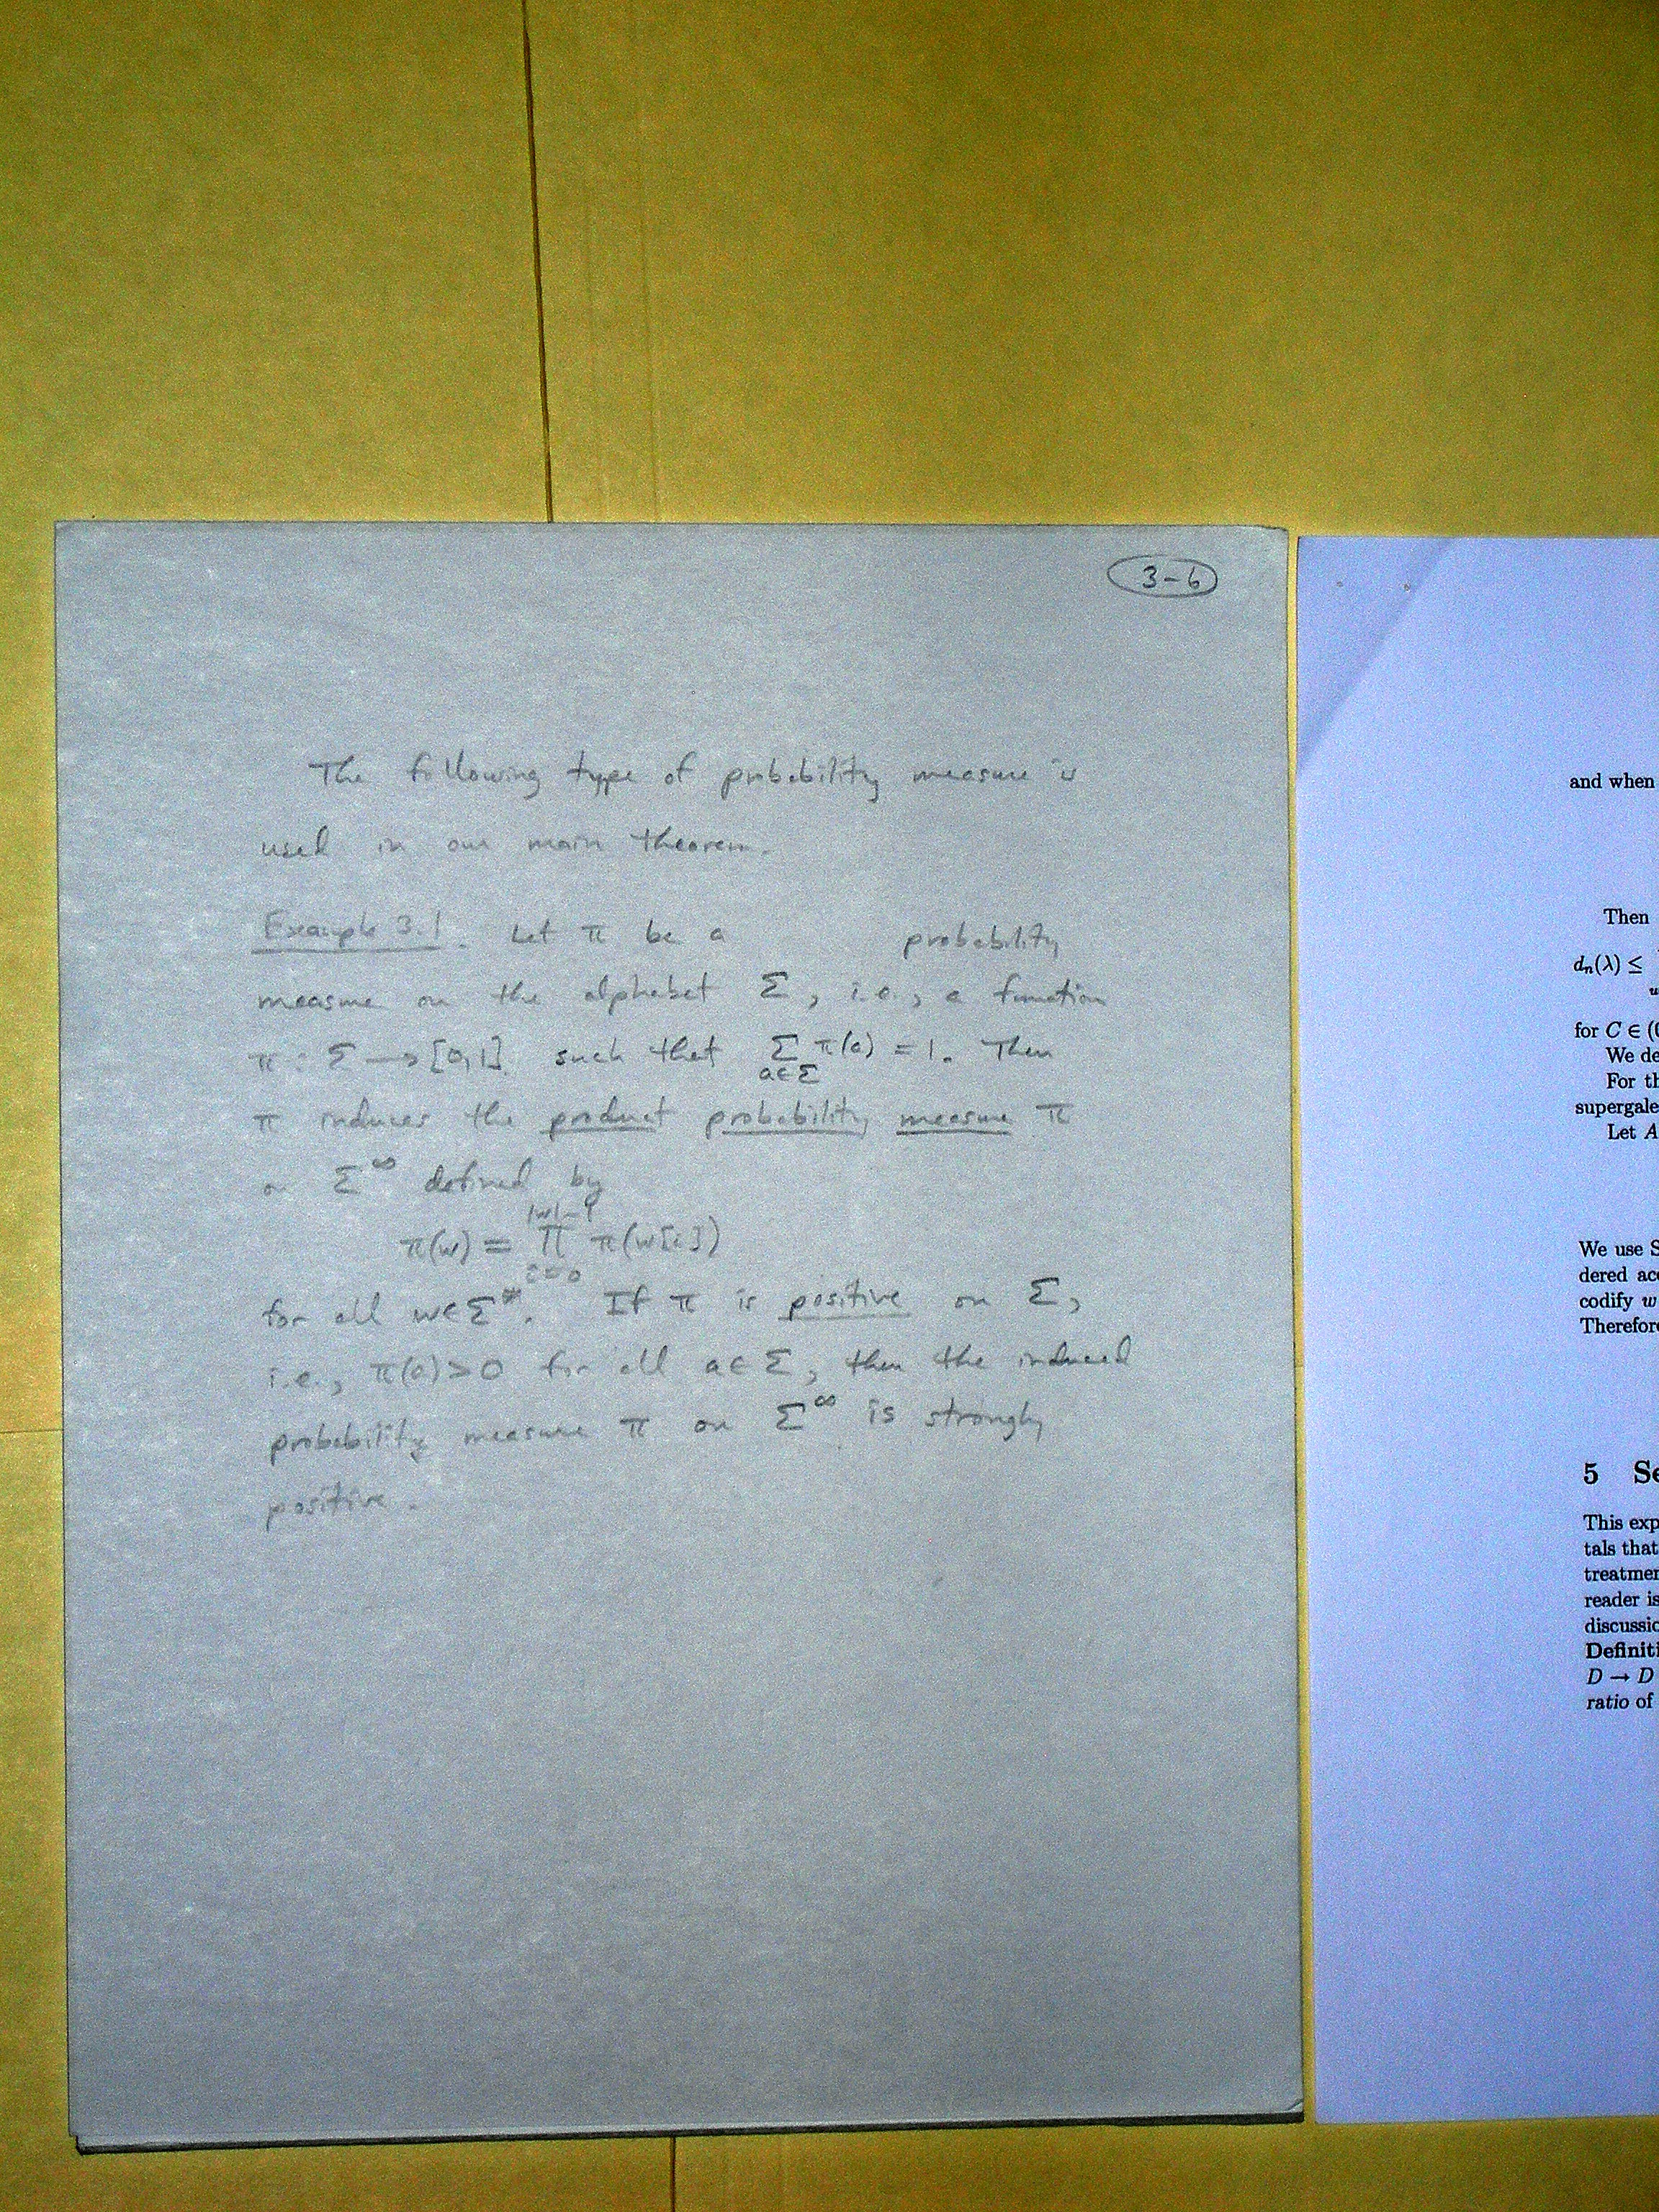 3-6
The following type of probability measure is
used in our main theorem.
Example 3.1. Let π be a probability
measure on the alphabet Σ, i.e., a function
π : Σ → [0,1] such that Σ π(a) = 1. Then
a∈Σ
π induces the product probability measure π
on Σ^∞ defined by
|w|-1
π(w) = Π π(w[i])
i=0
for all w∈Σ*. If π is positive on Σ,
i.e., π(a)>0 for all a∈Σ, then the induced
probability measure π on Σ^∞ is strongly
positive.
and when
Then
dₙ(λ) ≤
for C ∈
We de
For th
supergale
Let A
We use S
dered acc
codify w
Therefore
5 Se
This exp
tals that
treatmen
reader is
discussio
Definiti
D → D
ratio of